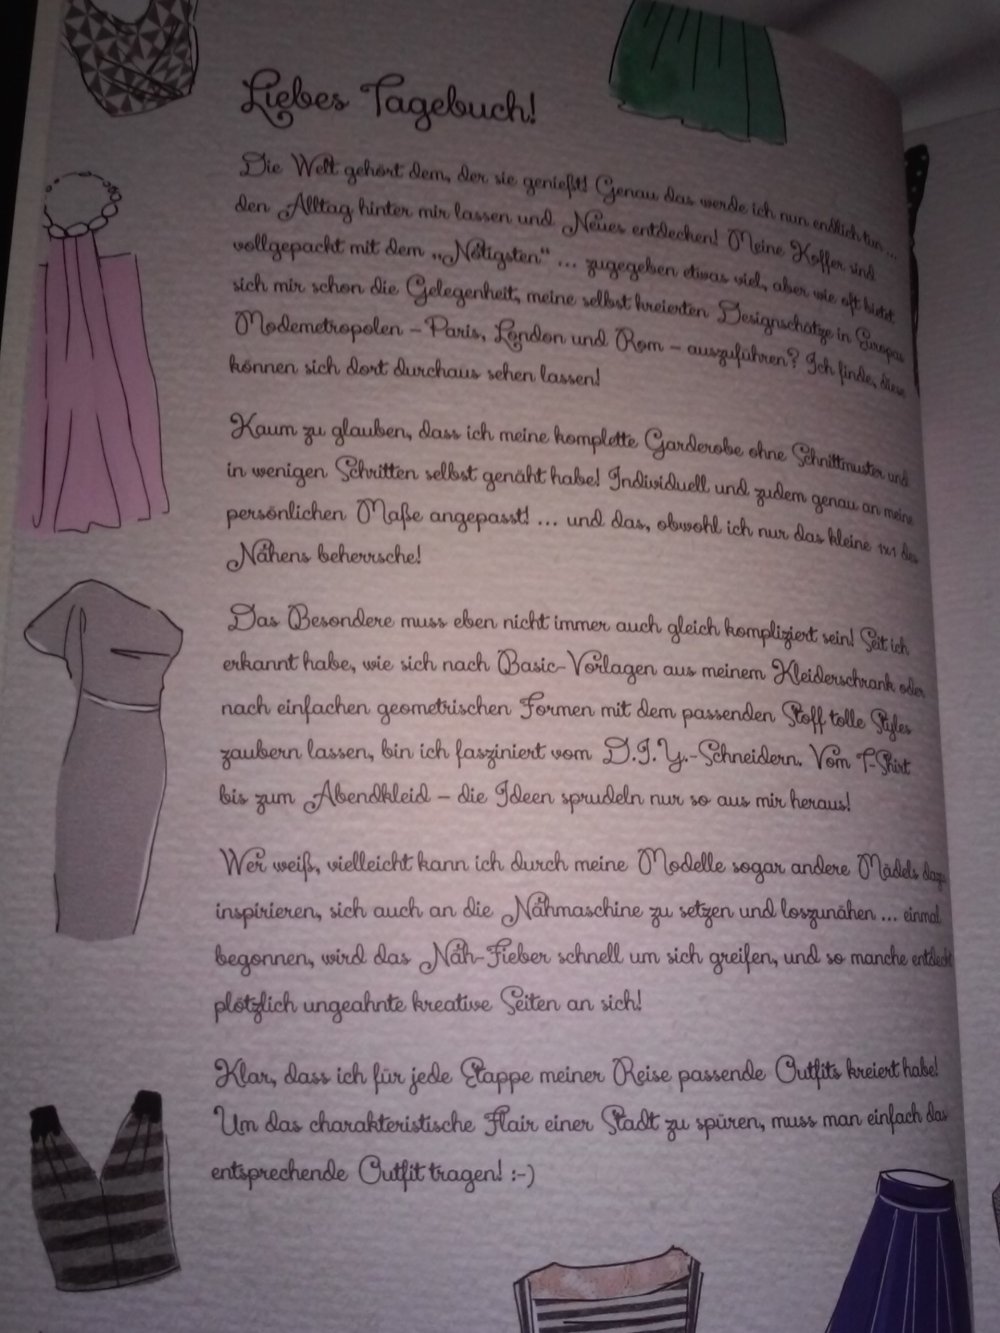 Liebes Tagebuch!
Die Welt gehört dem, der sie genießt! Genau das werde ich nun endlich tun ...
den Alltag hinter mir lassen und Neues entdecken! Meine Koffer sind
vollgepackt mit dem „Nötigsten“ ... zugegeben etwas viel, aber wie oft bietet
sich mir schon die Gelegenheit, meine selbst kreierten Designschätze in Europas
Modemetropolen – Paris, London und Rom – auszuführen? Ich finde, diese
können sich dort durchaus sehen lassen!
Kaum zu glauben, dass ich meine komplette Garderobe ohne Schnittmuster und
in wenigen Schritten selbst genäht habe! Individuell und zudem genau an meine
persönlichen Maße angepasst! ... und das, obwohl ich nur das kleine 1x1 des
Nähens beherrsche!
Das Besondere muss eben nicht immer auch gleich kompliziert sein! Seit ich
erkannt habe, wie sich nach Basic-Vorlagen aus meinem Kleiderschrank oder
nach einfachen geometrischen Formen mit dem passenden Stoff tolle Styles
zaubern lassen, bin ich fasziniert vom D.I.Y.-Schneidern. Vom T-Shirt
bis zum Abendkleid – die Ideen sprudeln nur so aus mir heraus!
Wer weiß, vielleicht kann ich durch meine Modelle sogar andere Mädels dazu
inspirieren, sich auch an die Nähmaschine zu setzen und loszunähen ... einmal
begonnen, wird das Näh-Fieber schnell um sich greifen, und so manche entdeckt
plötzlich ungeahnte kreative Seiten an sich!
Klar, dass ich für jede Etappe meiner Reise passende Outfits kreiert habe!
Um das charakteristische Flair einer Stadt zu spüren, muss man einfach das
entsprechende Outfit tragen! :-)